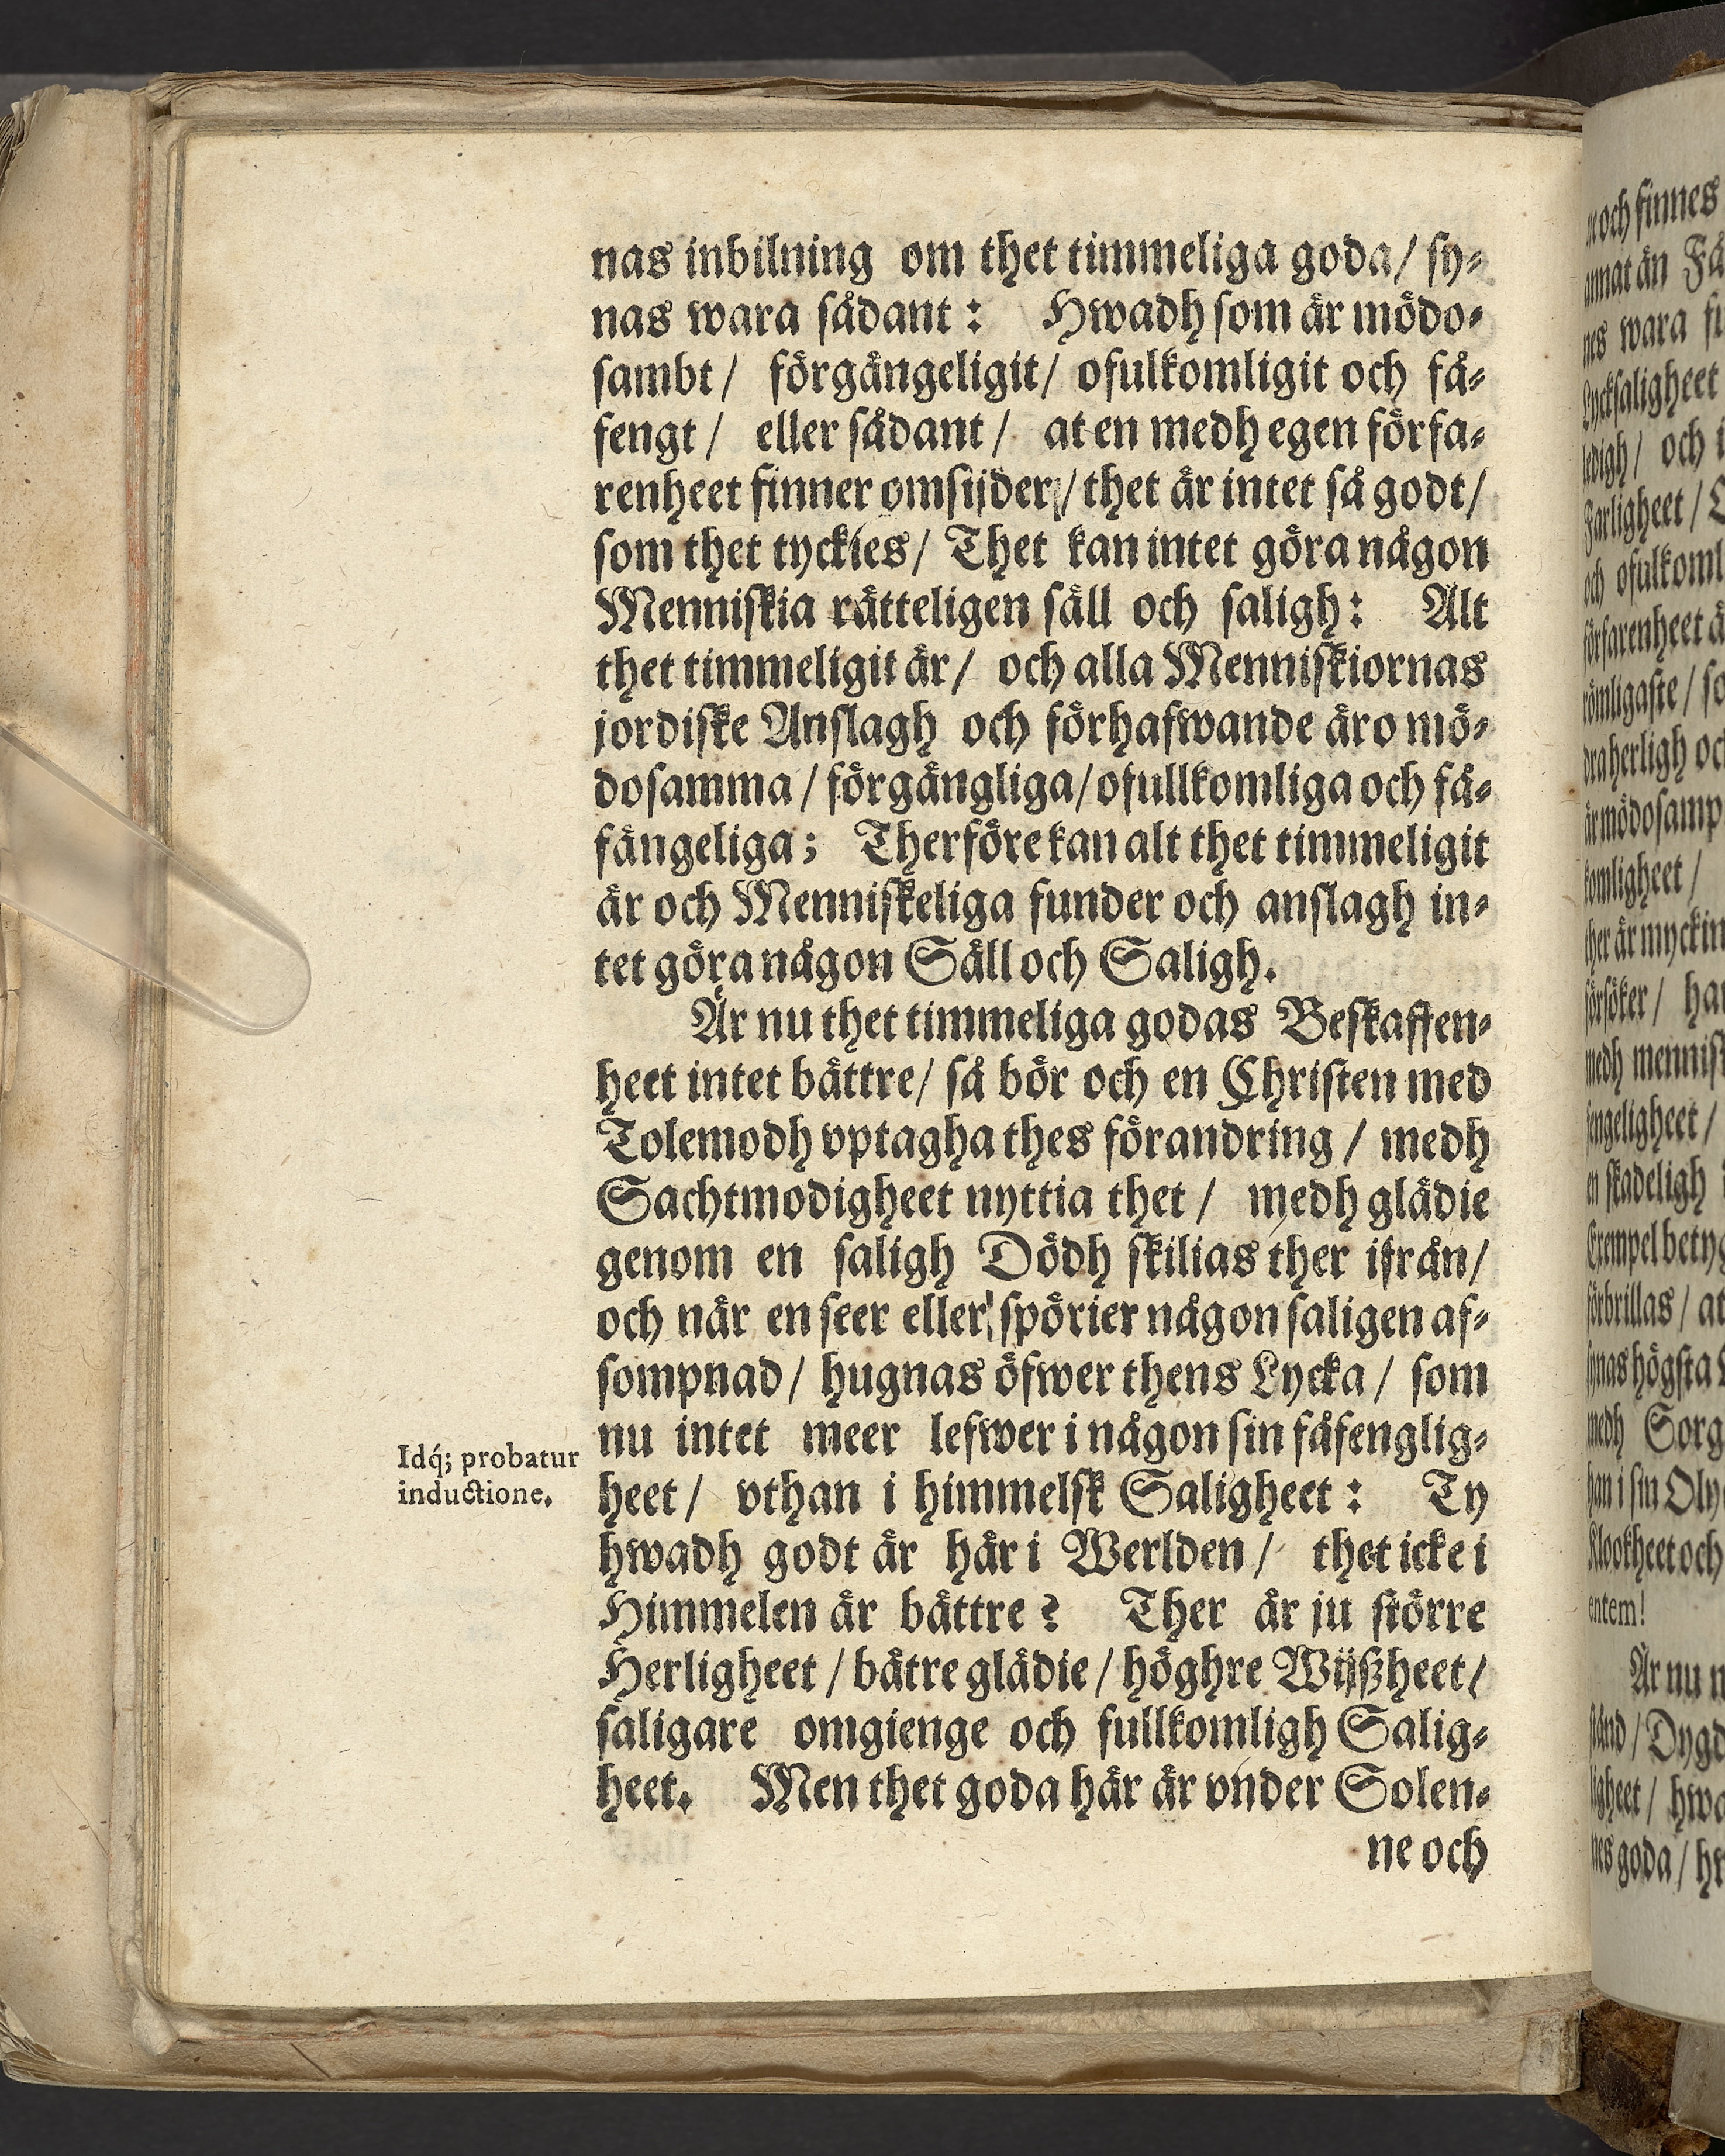 nas inbilning om thet timmeliga goda/ sy-
nas wara sådant: Hwadh som är mödo-
sambt/ förgängeligit/ ofulkomligit och få-
fengt/ eller sådant/ at en medh egen förfa-
renheet finner omsijder/ thet är intet så godt/
som thet tyckies/ Thet kan intet göra någon
Menniskia rätteligen säll och saligh: Alt
thet timmeligit är/ och alla Menniskiornas
jordiske Anslagh och förhafwande äro mö-
dosamma/ förgängliga/ ofullkomliga och få-
fängeliga; Therföre kan alt thet timmeligit
är och Menniskeliga funder och anslagh in-
tet göra någon Säll och Saligh.
Är nu thet timmeliga godas Beskaffen-
heet intet bättre/ så bör och en Christen med
Tolemodh vptagha thes förandring/ medh
Sachtmodigheet nyttia thet/ medh glädie
genom en saligh Dödh skilias ther ifrån/
och når en seer eller spörier någon saligen af-
sompnad/ hugnas öfwer thens Lycka/ som
nu intet meer lefwer i någon sin fåfenglig-
Idq́; probatur
inductione.
heet/ vthan i himmelsk Saligheet: Ty
hwadh godt är här i Werlden/ thet icke i
Himmelen är bättre? Ther är ju större
Herligheet/ bätre glädie/ höghre Wijßheet/
saligare omgienge och fullkomligh Salig-
heet. Men thet goda här är vnder Solen-
ne och
och finnes
annat än
wara
Lycksaligheet
ledigh/ och
Farligheet/
och
förfarenheet
herligh
är mödosamp
komligheet/
ther är
försöker/
medh
fengeligheet/
skadeligh
Exempel
förbrillas/ at
synas högsta
medh Sorg
han i sin
Klookheet och
entem!
Är nu
stånd/ Dygd
ligheet/
nes goda/